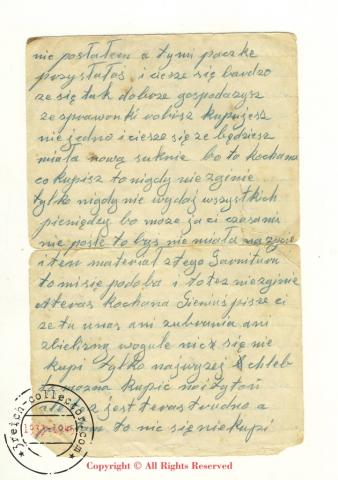 nie posłałem a tymi paczke
przysłałaś i ciesze się bardzo
że się tak dobrze gospodażysz
ze sprawonki robisz kupujesz
niejedno i ciesze się ze będziesz
miała nową suknie bo to kochana
co kupisz to nigdy nie zginie
tylko nigdy nie wydaj wszystkich
pieniędzy bo moze ja ci czasami
nie posle to byś nie miała na życie
i ten material z tego Garnituru
to mi się podoba i to tez niezginie
A teras kochana Gieniuś pisze ci
ze tu unas ani zubrania ani
zbielizny wogule nicz się nie
kupi tylko najwyzej chleb
mozna kupic no i tytoń
jest teras trudno a
to nic się niekupi
3reich-collector.com
1933-1945
Copyright © All Rights Reserved